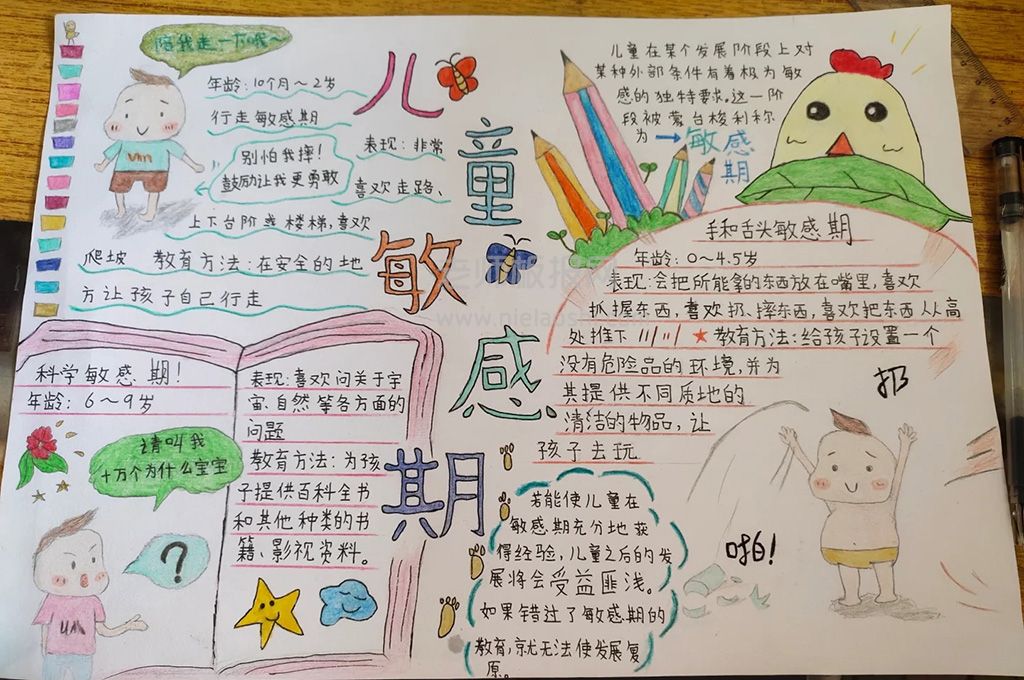 儿童敏感期
陪我走一下哦～
年龄：10个月～2岁
行走敏感期
别怕我摔！
鼓励让我更勇敢
表现：非常
喜欢走路、
上下台阶或楼梯，喜欢
爬坡 教育方法：在安全的地
方让孩子自己行走
儿童在某个发展阶段上对
某种外部条件有着极为敏
感的独特要求。这一阶
段被蒙台梭利称
为→敏感
期
手和舌头敏感期
年龄：0～4.5岁
表现：会把所能拿的东西放在嘴里，喜欢
抓握东西，喜欢扔、摔东西，喜欢把东西从高
处推下 ★教育方法：给孩子设置一个
没有危险品的环境，并为
其提供不同质地的
清洁的物品，让
孩子去玩
扔
啪！
科学敏感期！
年龄：6～9岁
请叫我
十万个为什么宝宝
?
um
um
表现：喜欢问关于宇
宙、自然等各方面的
问题
教育方法：为孩
子提供百科全书
和其他种类的书
籍、影视资料。
若能使儿童在
敏感期充分地获
得经验，儿童之后的发
展将会受益匪浅。
如果错过了敏感期的
教育，就无法使发展复
原。
老师板报网